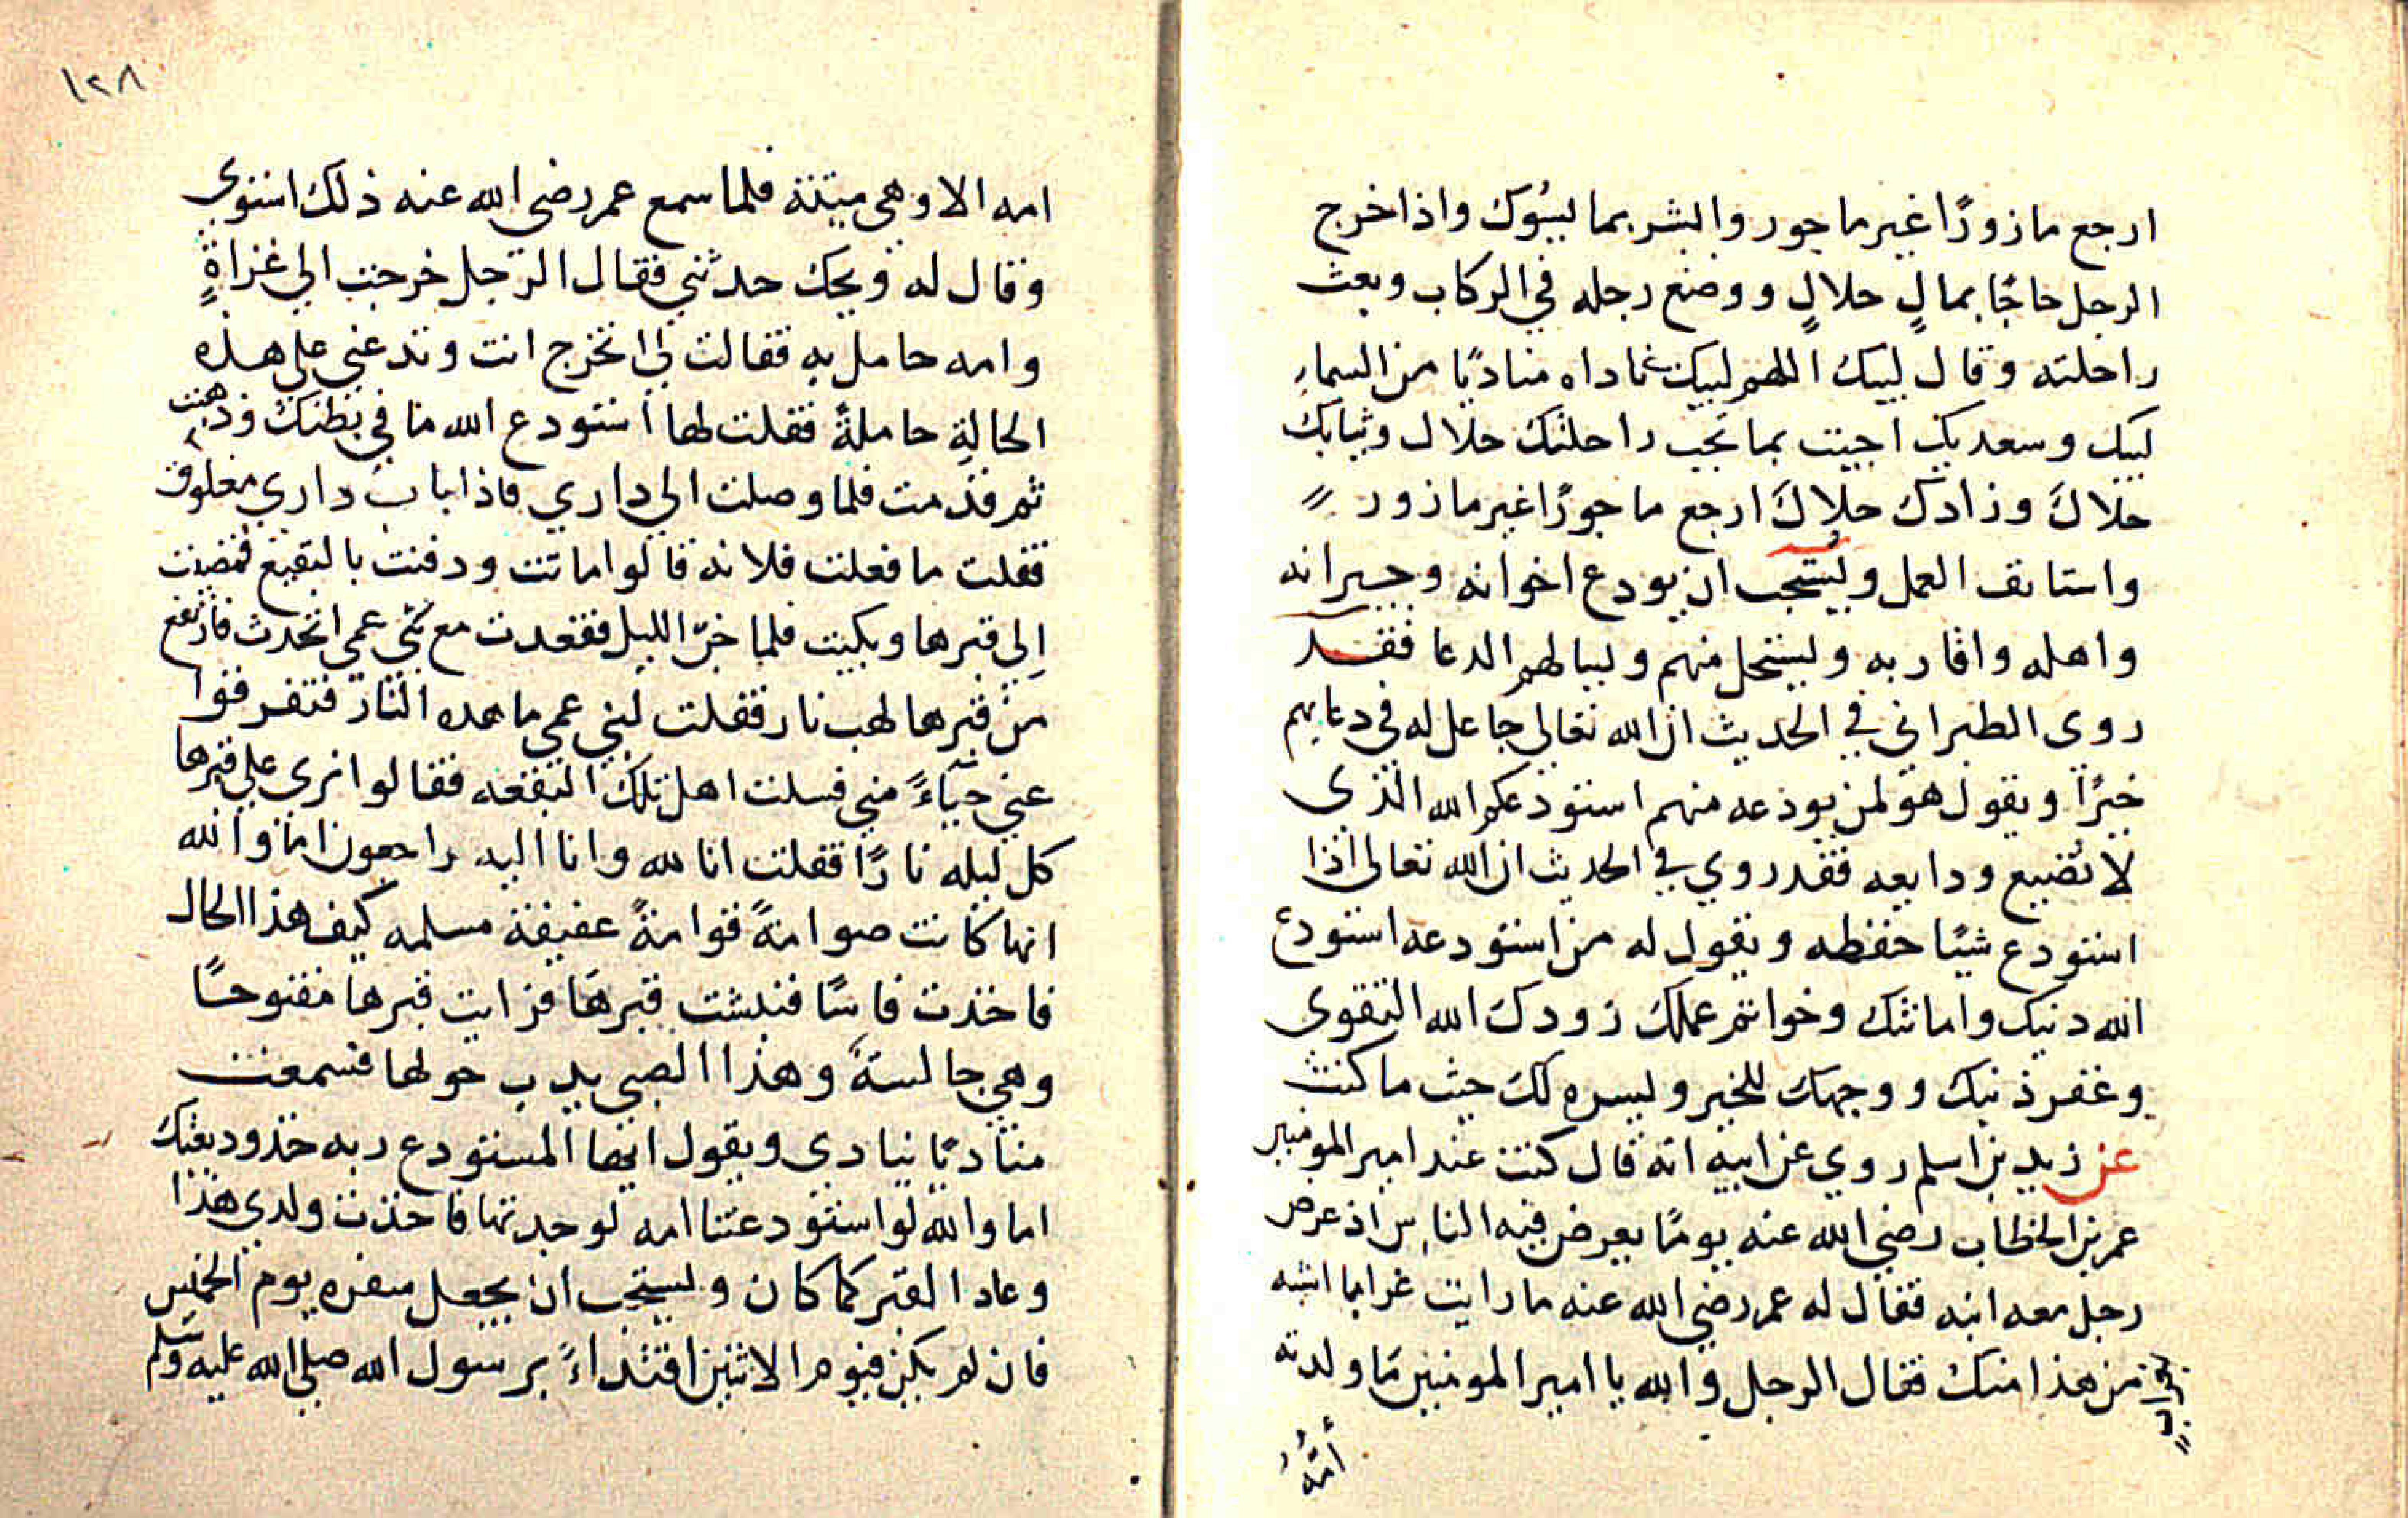 ارجع مازورًا غير ماجور وابشر بما يسُوك واذا خرج
الرجل حاجًا بمالٍ حلالٍ ووضع رجله في الركاب وبعث
راحلته وقال لبيك اللهم لبيك ناداه مناديًا من السماءِ
لبيك وسعديك اجبت بما تحب راحلتك حلال وثيابك
حلال وزادك حلال ارجع ماجورًا غير مازور
واستانف العمل ويستحب ان يودع اخوانه وجيرانه
واهله واقاربه ويستحل منهم ويسالهم الدعا فقد
روى الطبراني في الحديث ان الله تعالى جاعل له في دعايهم
خيرًا ويقول هو لمن يودعه منهم استودعكم الله الذى
لا تضيع ودايعه فقد روي في الحديث ان الله تعالى اذا
استودع شيئا حفظه ويقول له من استودعه استودع
الله دينك وامانتك وخواتم عملك زودك الله التقوى
وغفر ذنبك ووجهك للخير ويسره لك حيث ما كنت
عن زيد بن اسلم روي عن ابيه انه قال كنت عند امير المومنين
عمر بن الخطاب رضي الله عنه يومًا يعرض فيه الناس اذ عرض
رجل معه ابنه فقال له عمر رضي الله عنه ما رايت غرابا اشبه
من هذا منك فقال الرجل والله يا امير المومنين ما ولدته
أمُّهُ
١٢٨
امه الا وهي ميتة فلما سمع عمر رضي الله عنه ذلك استوى
وقال له ويحك حدثني فقال الرجل خرجت الى غزاةٍ
وامه حامل به فقالت لي اتخرج انت وتدعني على هذه
الحالةِ حاملةً فقلت لها استودع الله ما في بطنك وذهبت
ثم قدمت فلما وصلت الى داري فاذا باب داري مغلوق
فقلت ما فعلت فلانه قالوا ماتت ودفنت بالبقيع فمضيت
اِلى قبرها وبكيت فلما جنّ الليل فقعدت مع بني عمي اتحدث فارتفع
من قبرها لهب نار فقلت لبني عمي ما هذه النار فتفرقوا
عني حيآءً مني فسلت اهل تلك البقعه فقالوا نرى على قبرها
كل ليله نارًا فقلت انا لله وانا اليه راجعون اما والله
انها كانت صوامةً قوامةً عفيفة مسلمه كيف هذا الحال
فاخذت فاسًا فنبشت قبرها فرايت قبرها مفتوحًا
وهي جالسةً وهذا الصبي يدب حولها فسمعت
مناديًا ينادى ويقول ايها المستودع ربه خذ وديعتك
اما والله لو استودعتنا امه لوجدتها فاخذت ولدي هذا
وعاد القبر كما كان ويستحب ان يجعل سفره يوم الخميس
فان لم يكن فيوم الاثنين اقتداءً برسول الله صلى الله عليه وسلم